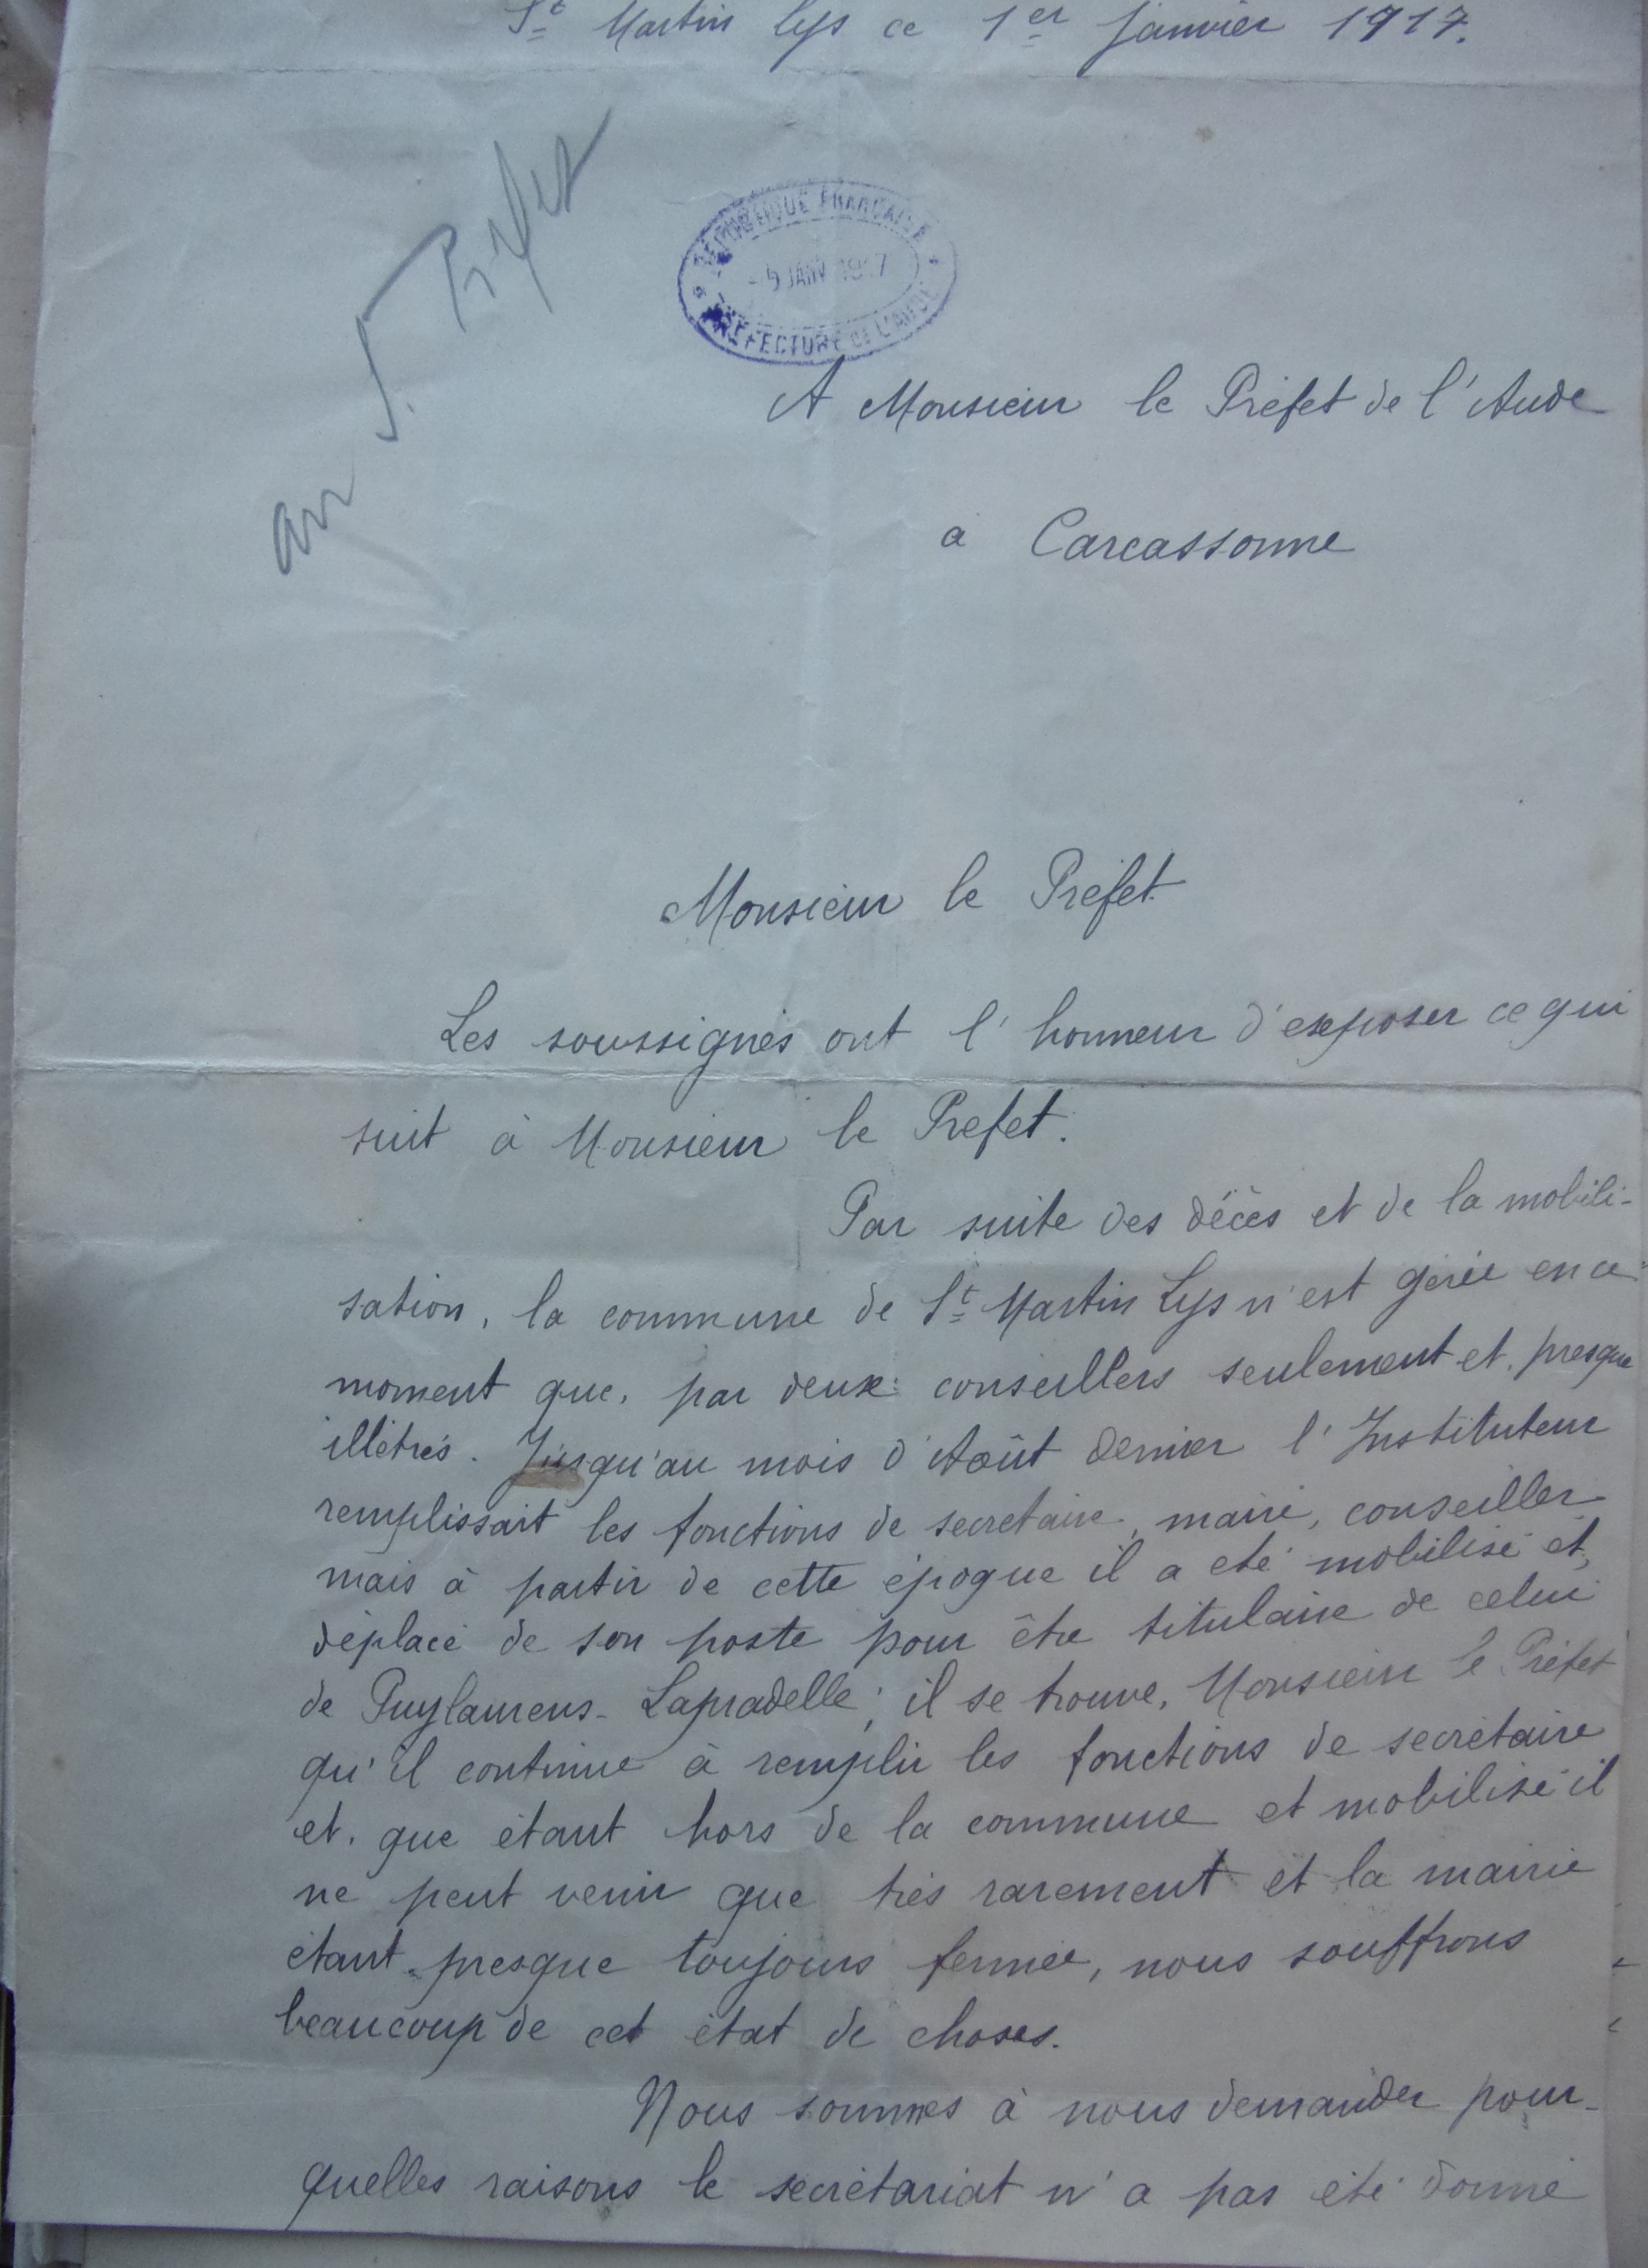 St Martin Lys ce 1er Janvier 1917.
au S. Préfet
RÉPUBLIQUE FRANÇAISE
- 5 JANV 1917
PRÉFECTURE DE L'AUDE
A Monsieur le Préfet de l'Aude
à Carcassonne
Monsieur le Préfet
Les soussignés ont l'honneur d'exposer ce qui
suit à Monsieur le Prefet.
Par suite des décès et de la mobili-
sation, la commune de St Martin Lys n'est gérée en ce
moment que, par deux conseillers seulement et, presque
illétrés. Jusqu'au mois d'Août dernier l'Instituteur
remplissait les fonctions de secrétaire, maire, conseiller
mais à partir de cette époque il a été mobilisé et,
déplacé de son poste pour être titulaire de celui
de Puylaurens-Lapradelle; il se trouve, Monsieur le Préfet
qu'il continue à remplir les fonctions de secrétaire
et, que étant hors de la commune et mobilisé il
ne peut venir que très rarement et la mairie
étant presque toujours fermée, nous souffrons
beaucoup de cet état de choses.
Nous sommes à nous demander pour-
quelles raisons le secrétariat n'a pas été donné